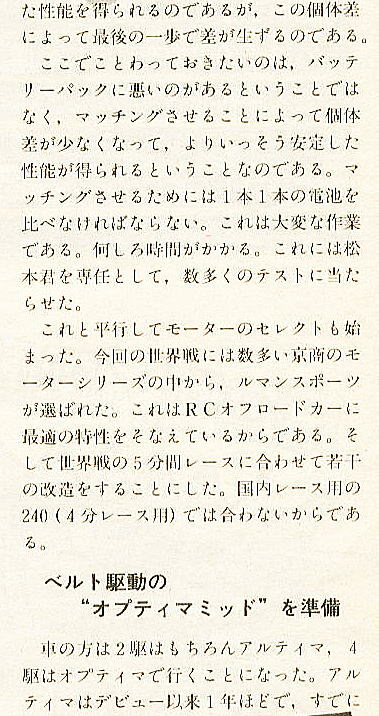 た性能を得られるのであるが，この個体差
によって最後の一歩で差が生ずるのである。
　ここでことわっておきたいのは，バッテ
リーパックに悪いのがあるということでは
なく，マッチングさせることによって個体
差が少なくなって，よりいっそう安定した
性能が得られるということなのである。マ
ッチングさせるためには１本１本の電池を
比べなければならない。これは大変な作業
である。何しろ時間がかかる。これには松
本君を専任として，数多くのテストに当た
らせた。
　これと平行してモーターのセレクトも始
まった。今回の世界戦には数多い京商のモ
ーターシリーズの中から，ルマンスポーツ
が選ばれた。これはＲＣオフロードカーに
最適の特性をそなえているからである。そ
して世界戦の５分間レースに合わせて若干
の改造をすることにした。国内レース用の
240（４分レース用）では合わないからであ
る。
ベルト駆動の
“オプティマミッド”を準備
　車の方は２駆はもちろんアルティマ，４
駆はオプティマで行くことになった。アル
ティマはデビュー以来１年ほどで，すでに